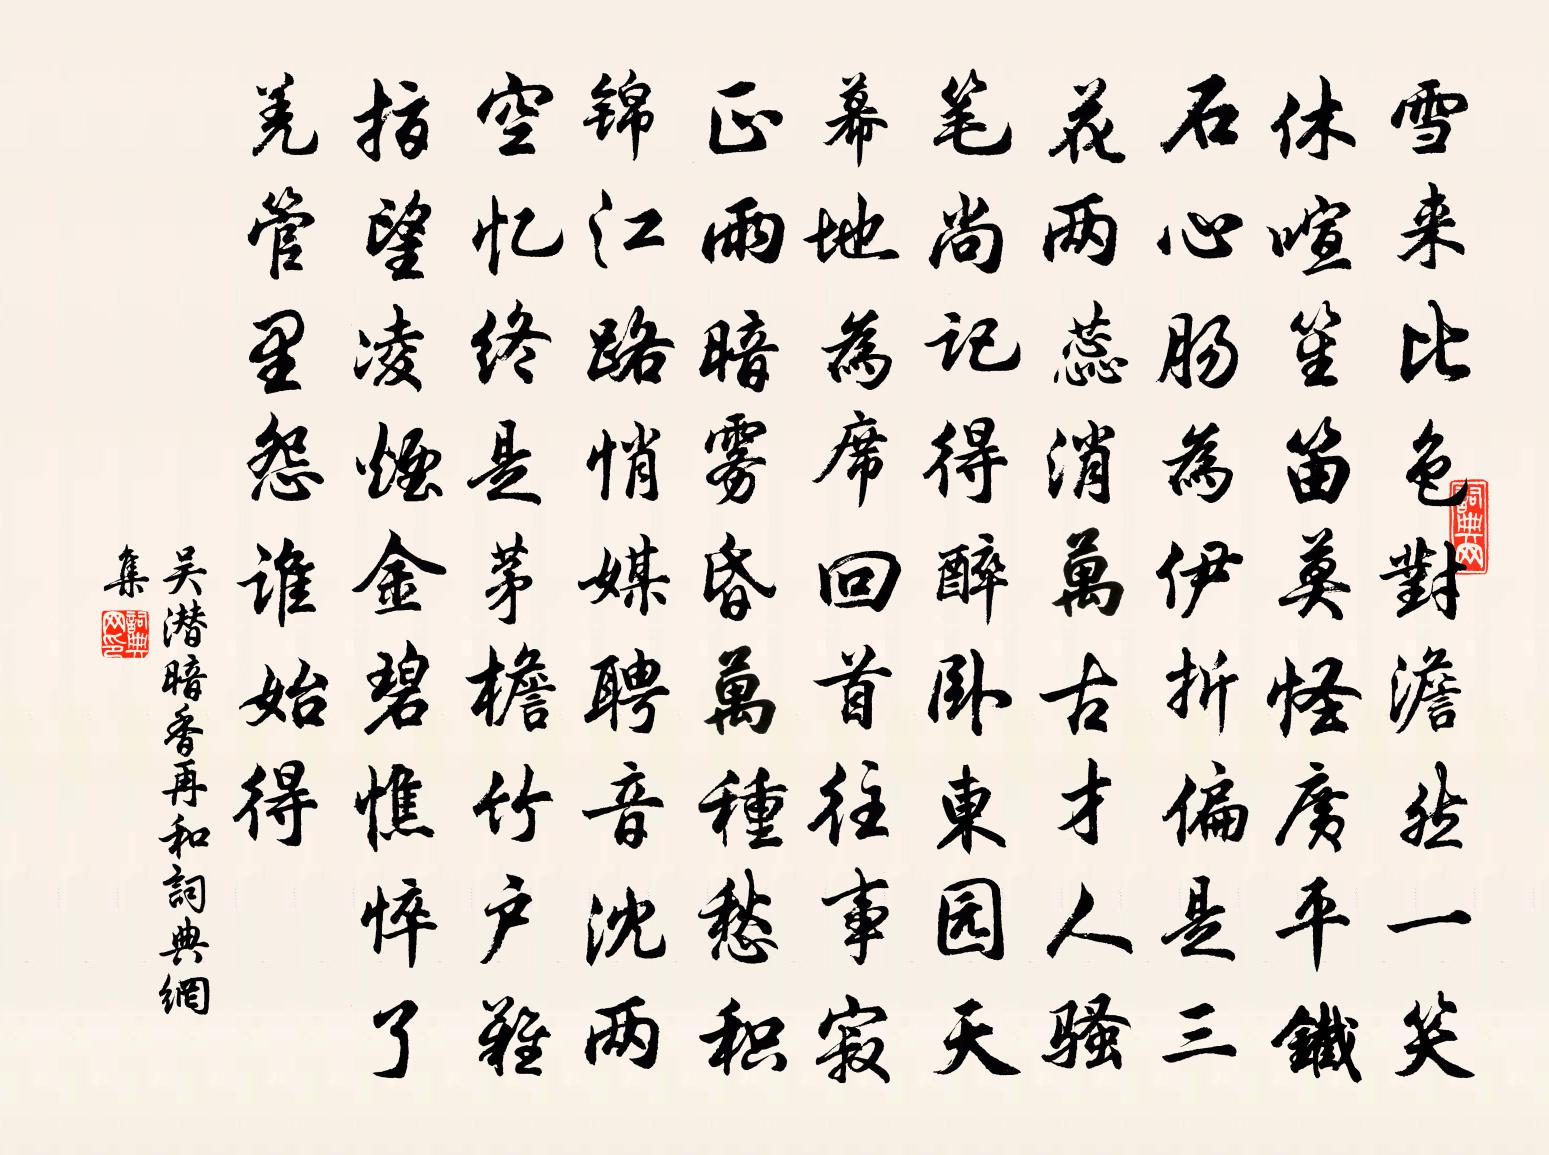 雪来比色對澹然一笑
休喧笙笛莫怪廣平鐵
石心肠為伊折偏是三
花两蕊消萬古才人骚
笔尚记得醉卧東园天
幕地為席回首往事寂
正雨暗雾昏萬種愁积
锦江路悄媒聘音沈两
空忆终是茅檐竹户難
指望凌煙金碧憔悴了
羌管里怨谁始得
吴潜暗香再和詞典網
集
詞典网
詞典网印